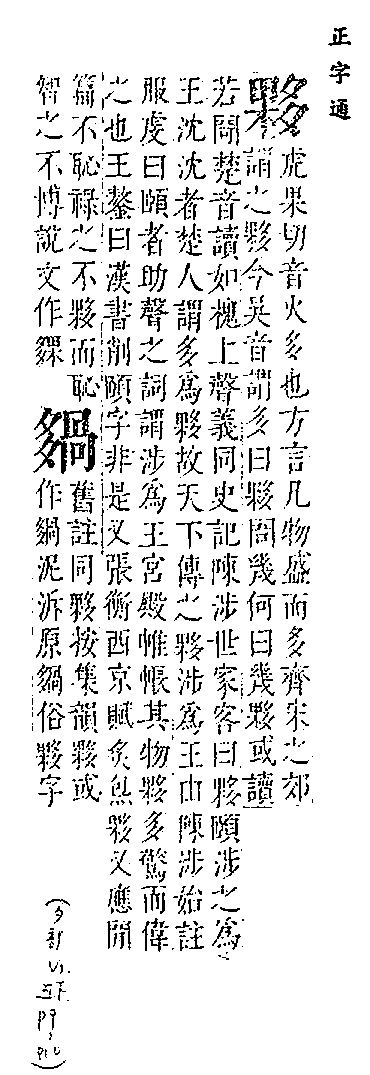 正字通
夥 虎果切音火多也方言凡物盛而多齊宋之郊
謂之夥今吳音謂多曰夥問幾何曰幾夥或讀
若閜楚音讀如槐上聲義同史記陳涉世家客曰夥頤涉之為
王沈沈者楚人謂多為夥故天下傳之夥涉為王由陳涉始註
服虔曰頤者助聲之詞謂涉為王宮殿帷帳其物夥多驚而偉
之也王鏊曰漢書削頤字非是又張衡西京賦炙炰夥又應閒
篇不恥祿之不夥而恥
智之不博說文作
舊註同夥按集韻夥或
作 泥泝原 俗夥字